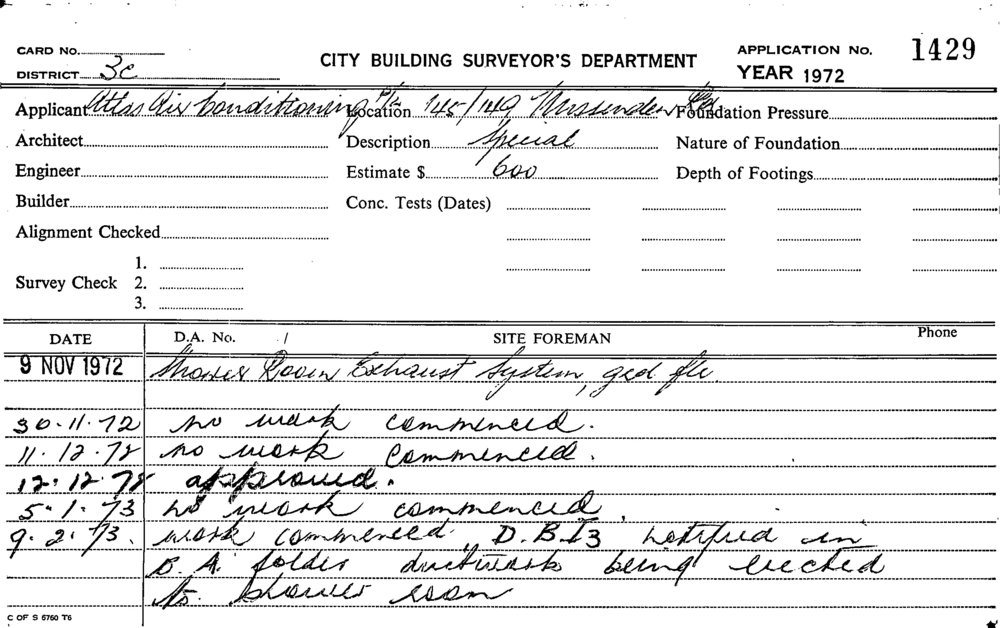 CARD No.
DISTRICT 3c
CITY BUILDING SURVEYOR'S DEPARTMENT
APPLICATION No. 1429
YEAR 1972
Applicant Atlas Air Conditioning P/L Location 145/149 Missenden Rd Foundation Pressure
Architect Description Special Nature of Foundation
Engineer Estimate $ 600 Depth of Footings
Builder Conc. Tests (Dates)
Alignment Checked
Survey Check 1.
2.
3.
DATE D.A. No. / SITE FOREMAN Phone
9 NOV 1972 Shower Room Exhaust System, grd flr.
30.11.72 no work commenced.
11.12.72 no work commenced.
12.12.72 approved.
5.1.73 no work commenced.
9.2.73. work commenced. D.B.I3 notified in
B.A. folder ductwork being erected
to shower room
C OF S 6760 T6